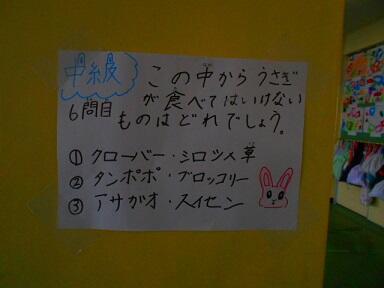 中級
6問目
この中からうさぎ
が食べてはいけない
ものはどれでしょう。
① クローバー・シロツメ草
② タンポポ・ブロッコリー
③ アサガオ・スイセン